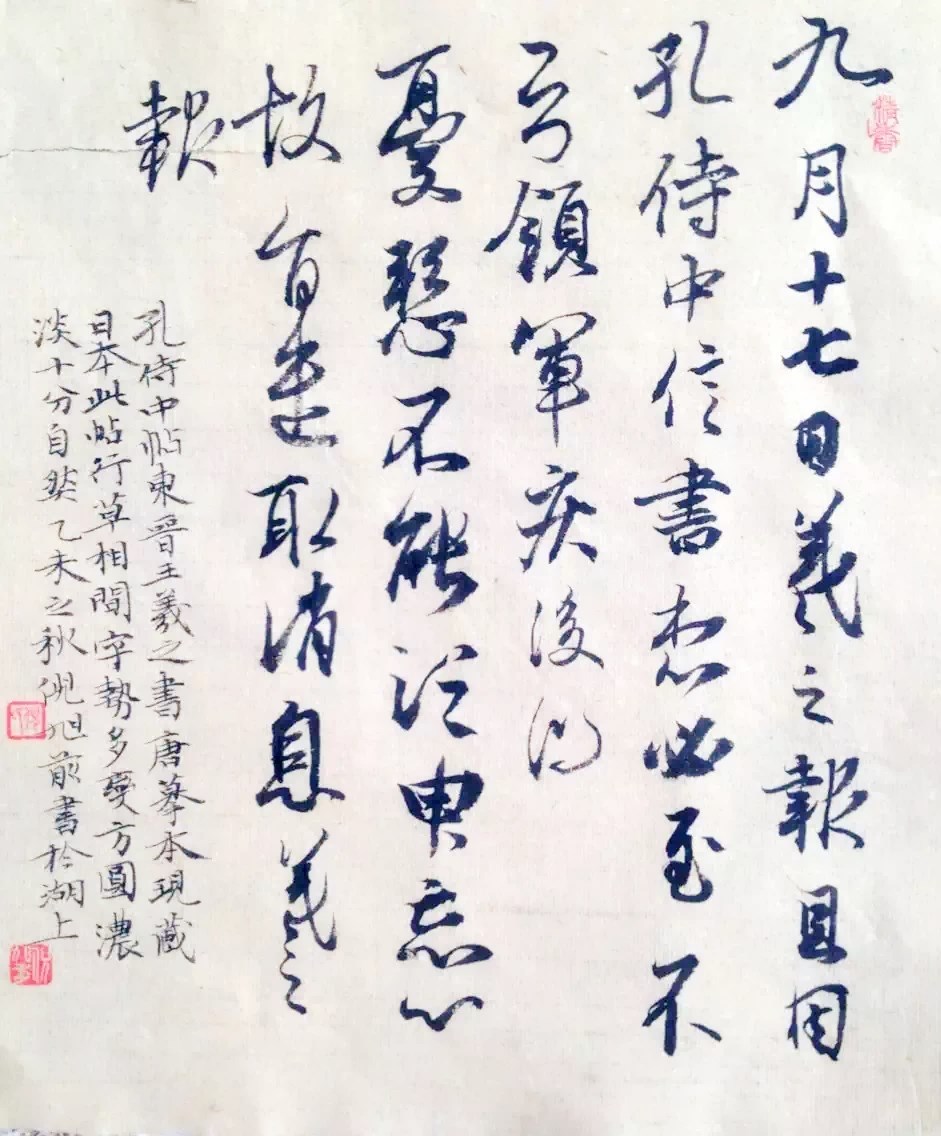 九月十七日羲之報且因
孔侍中信書想必至不
知領軍疾後問
憂懸不能須臾忘心
故旨遣取消息羲之
報
孔侍中帖東晉王羲之書唐摹本現藏
日本此帖行草相間字勢多變方圓濃
淡十分自然乙未之秋倪旭前書於湖上